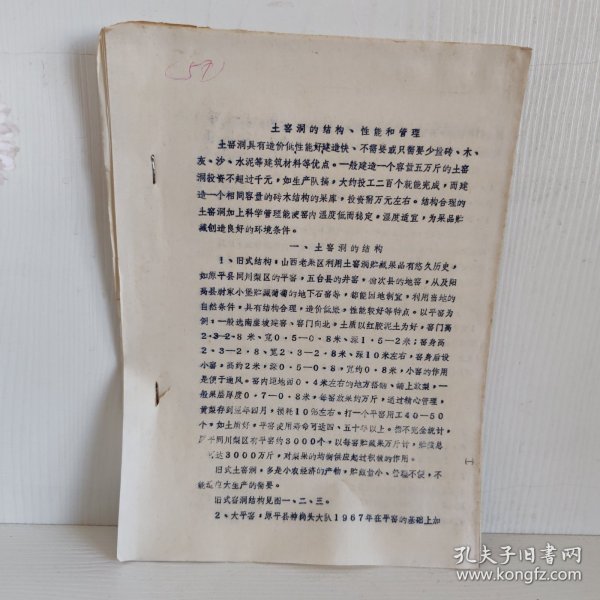 (59)
土窑洞的结构、性能和管理
土窑洞具有造价低性能好建造快、不需要或只需要少量砖、木、
灰、沙、水泥等建筑材料等优点。一般建造一个容量五万斤的土窑
洞投资不超过千元，如生产队搞，大约投工二百个就能完成，而建
造一个相同容量的砖木结构的果库，投资附万元左右。结构合理的
土窑洞加上科学管理能使窑内温度低而稳定。湿度适宜，为果品贮
藏创造良好的环境条件。
一、土窑洞的结构
1、旧式结构：山西老果区利用土窑洞贮藏果品有悠久历史，
如原平县同川梨区的平窑，五台县的井窑，榆次县的地窑，从及阳
高县尉家小堡贮藏葡萄的地下石窑等，都能因地制宜，利用当地的
自然条件，具有结构合理，造价低涨，性能较好等特点。以平窑为
例：一般选南崖坡筑窑、窑门向北。土质以红胶泥土为好，窑门高
2·3-2·8米、宽0·5-0·8米、深1·5-2米；窑身高
2·3-2·8、宽2·3-2·8米、深10米左右，窑身后设
小窑，高约2米，深0·5-0·8，宽约0·8米，小窑的作用
是便于通风。窑内距地面0·4米左右的地方搭铺、铺上放梨，一
般果层厚度0·7-0·8米，每窑放果约万斤，通过精心管理，
黄梨存到翌年四月，损耗10%左右。打一个平窑用工40-50
个，如土质好，平窑使用寿命可达四、五十年以上。据不完全统计，
原平同川梨区有平窑约3000个，以每窑贮藏果万斤计，贮藏总
可达3000万斤，对梨果的均衡供应起过积极的作用。
旧式土窑洞，多是小农经济的产物，贮藏量小、管理不便，不
能适应大生产的需要。
旧式窑洞结构见图一、二、三。
2、大平窑：原平县神狗头大队1967年在平窑的基础上加
孔夫子旧书网
www.kongfz.com